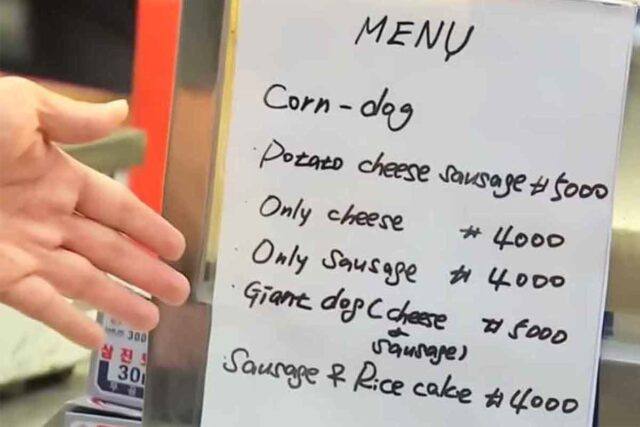 MENU
Corn-dog
· Potato cheese sausage ₩5000
Only cheese ₩4000
Only sausage ₩4000
· Giant dog (cheese ₩5000
+ sausage)
· Sausage & Rice cake ₩4000
300
삼진
30